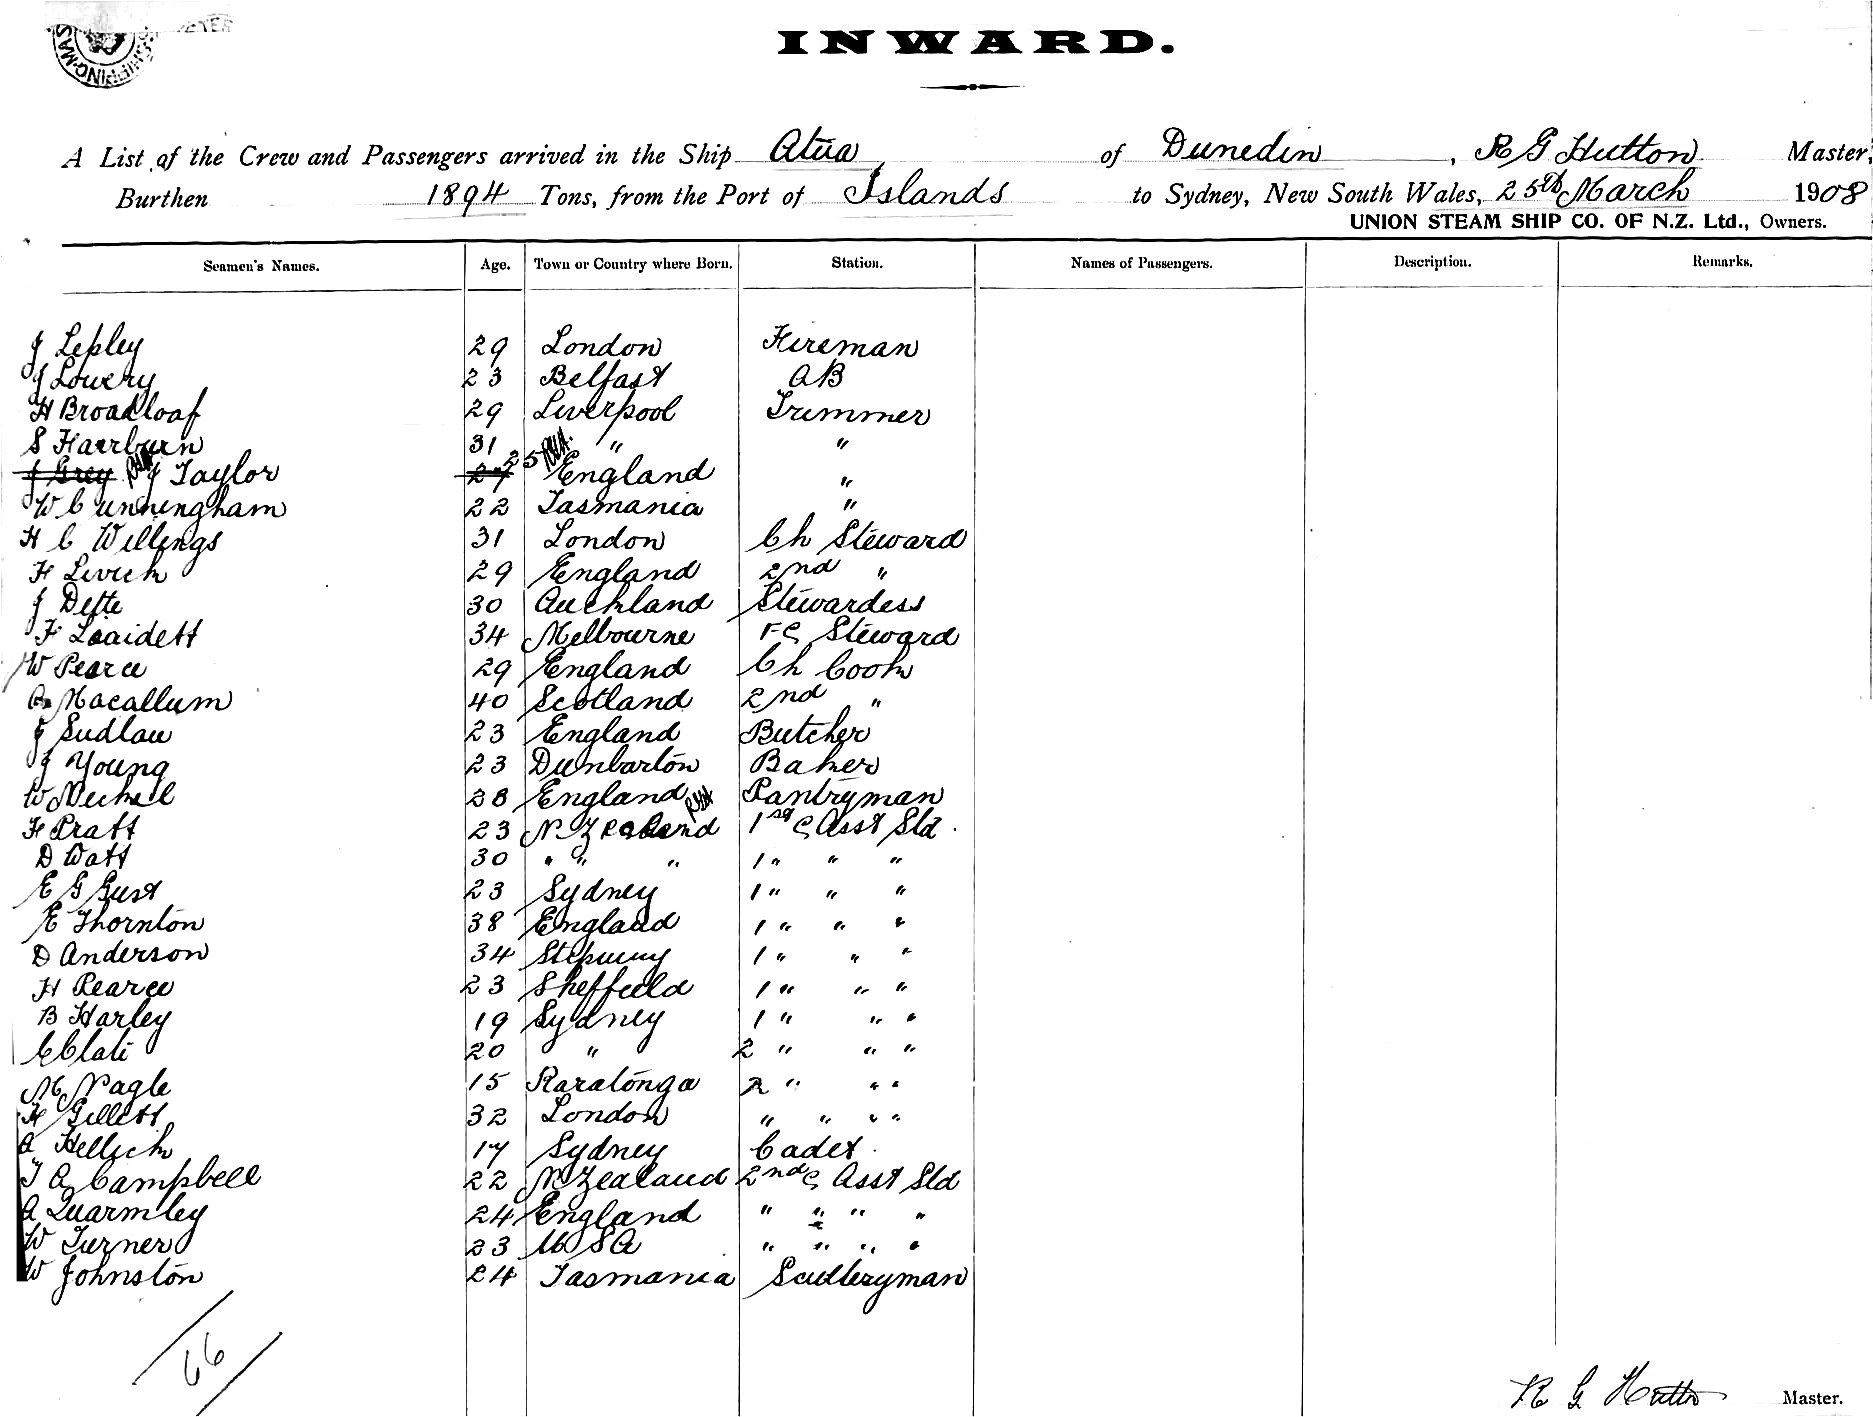 SHIPPING MAS
INWARD.
A List of the Crew and Passengers arrived in the Ship Atua of Dunedin, R G Hutton Master,
Burthen 1894 Tons, from the Port of Islands to Sydney, New South Wales, 25th March 1908
UNION STEAM SHIP CO. OF N.Z. Ltd., Owners.
Seamen's Names. Age. Town or Country where Born. Station. Names of Passengers. Description. Remarks.
J Lepley 29 London Fireman
J Lowery 23 Belfast AB
H Broadloaf 29 Liverpool Trimmer
S Hairburn 31 " "
J Grey RGH J Taylor 27 25 RGH England "
W Cunningham 22 Tasmania "
H C Willings 31 London Ch Steward
F Levick 29 England 2nd "
J Defte 30 Auckland Stewardess
F Loaidett 34 Melbourne F C Steward
W Pearce 29 England Ch Cook
Macallum 40 Scotland 2nd "
J Sudlau 23 England Butcher
J Young 23 Dunbarton Baker
W 28 England RGH Pantryman
F Pratt 23 N. Zealand 1st C Asst Std.
D Watt 30 " " " 1 " " "
E G Gust 23 Sydney 1 " " "
E Thornton 38 England 1 " " "
D Anderson 34 Stepney 1 " " "
H Pearce 23 Sheffield 1 " " "
B Harley 19 Sydney 1 " " "
C Clati 20 " 2 " " "
M Nagle 15 Raratonga 2 " " "
H Gillett 32 London " " " "
A Hellich 17 Sydney Cadet
T A Campbell 22 N. Zealand 2nd C Asst Std
A Quarmley 24 England " " " "
W Turner 23 USA " " " "
W Johnston 24 Tasmania Sculleryman
66
R G Hutton Master.